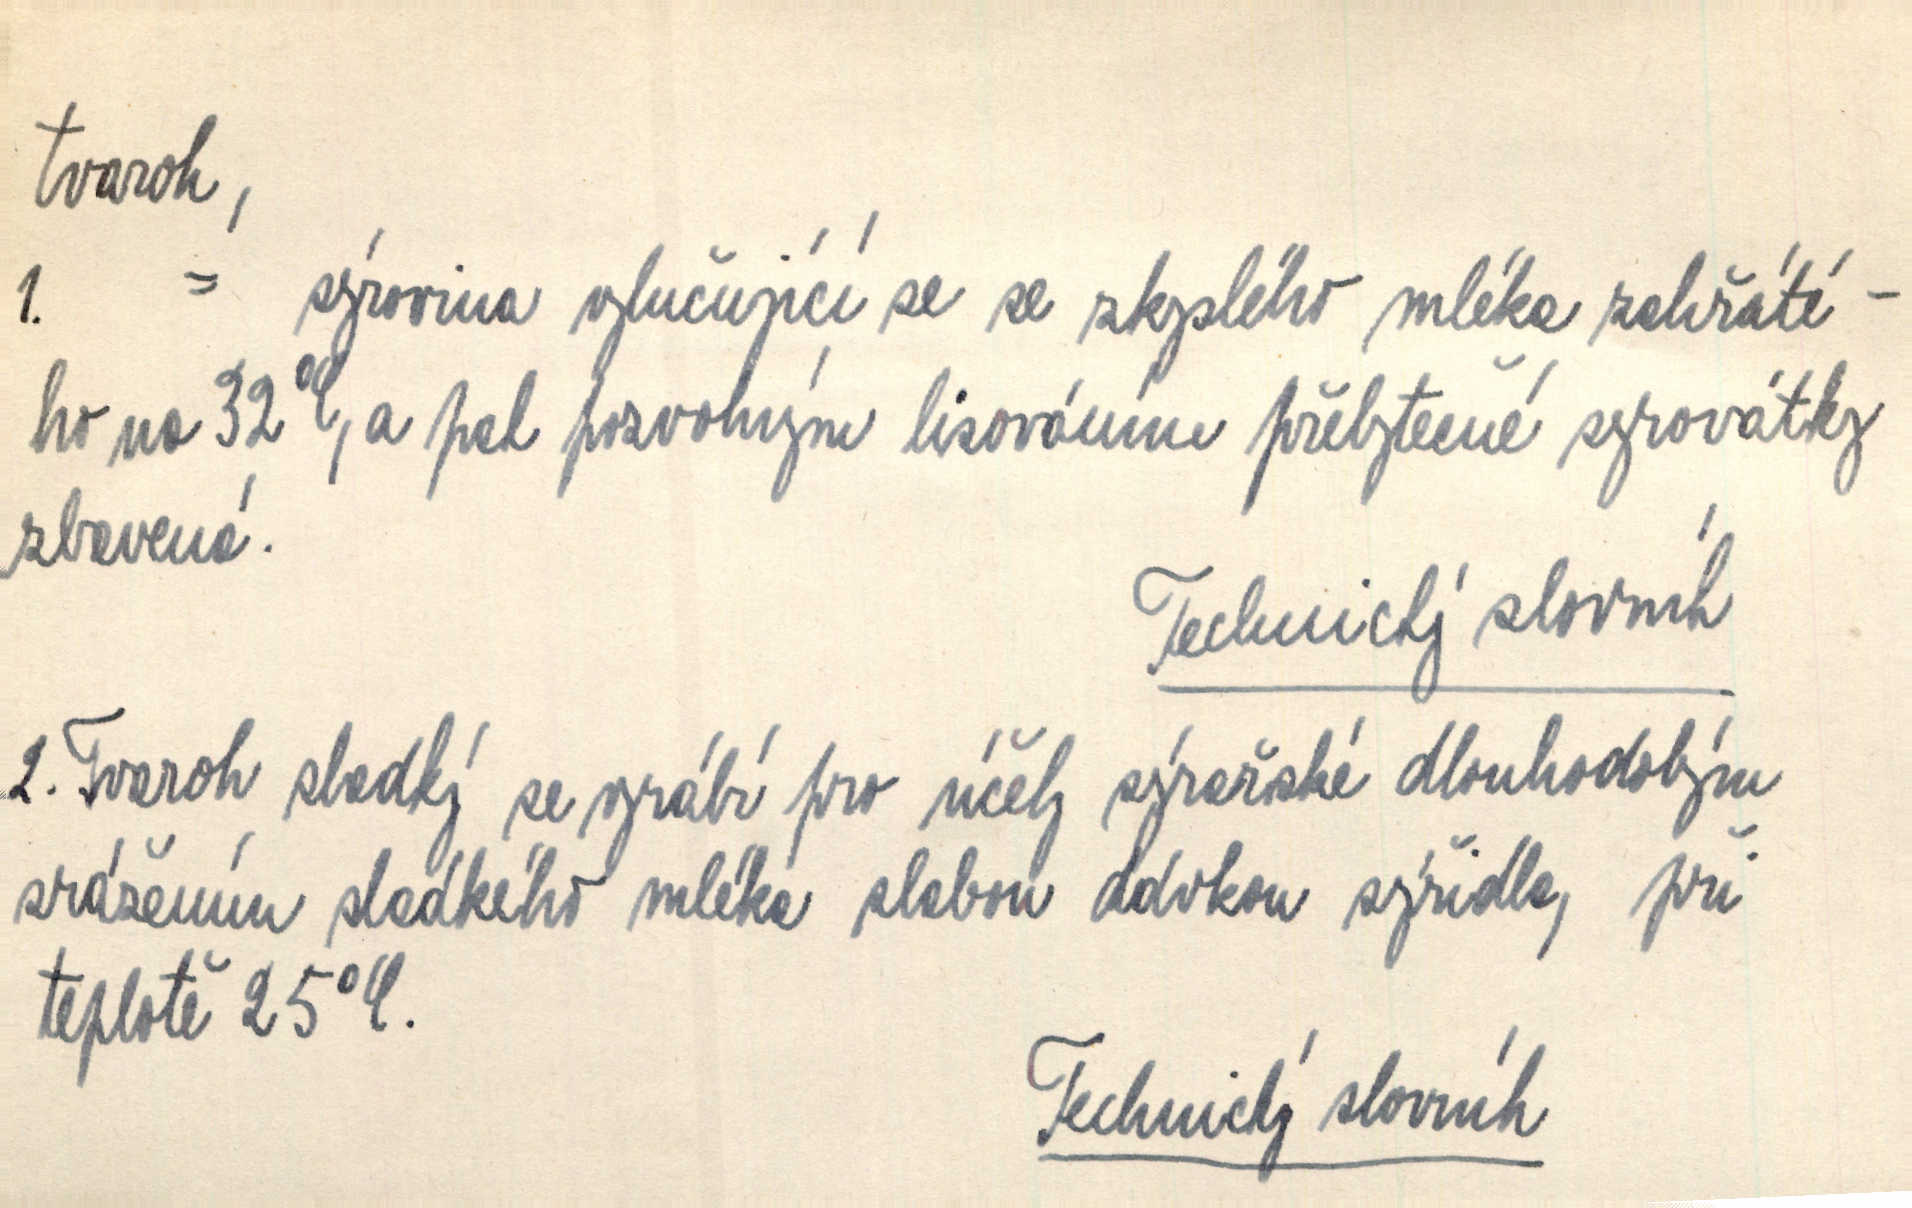 tvaroh,
1. = sýrovina vylučující se se zkyslého mléka zahřáté-
ho na 32°C, a pak pozvolným lisováním přebytečné syrovátky
zbavená.
Technický slovník
2. Tvaroh sladký se vyrábí pro účely sýrařské dlouhodobým
srážením sladkého mléka slabou dávkou syřidla, při
teplotě 25°C.
Technický slovník